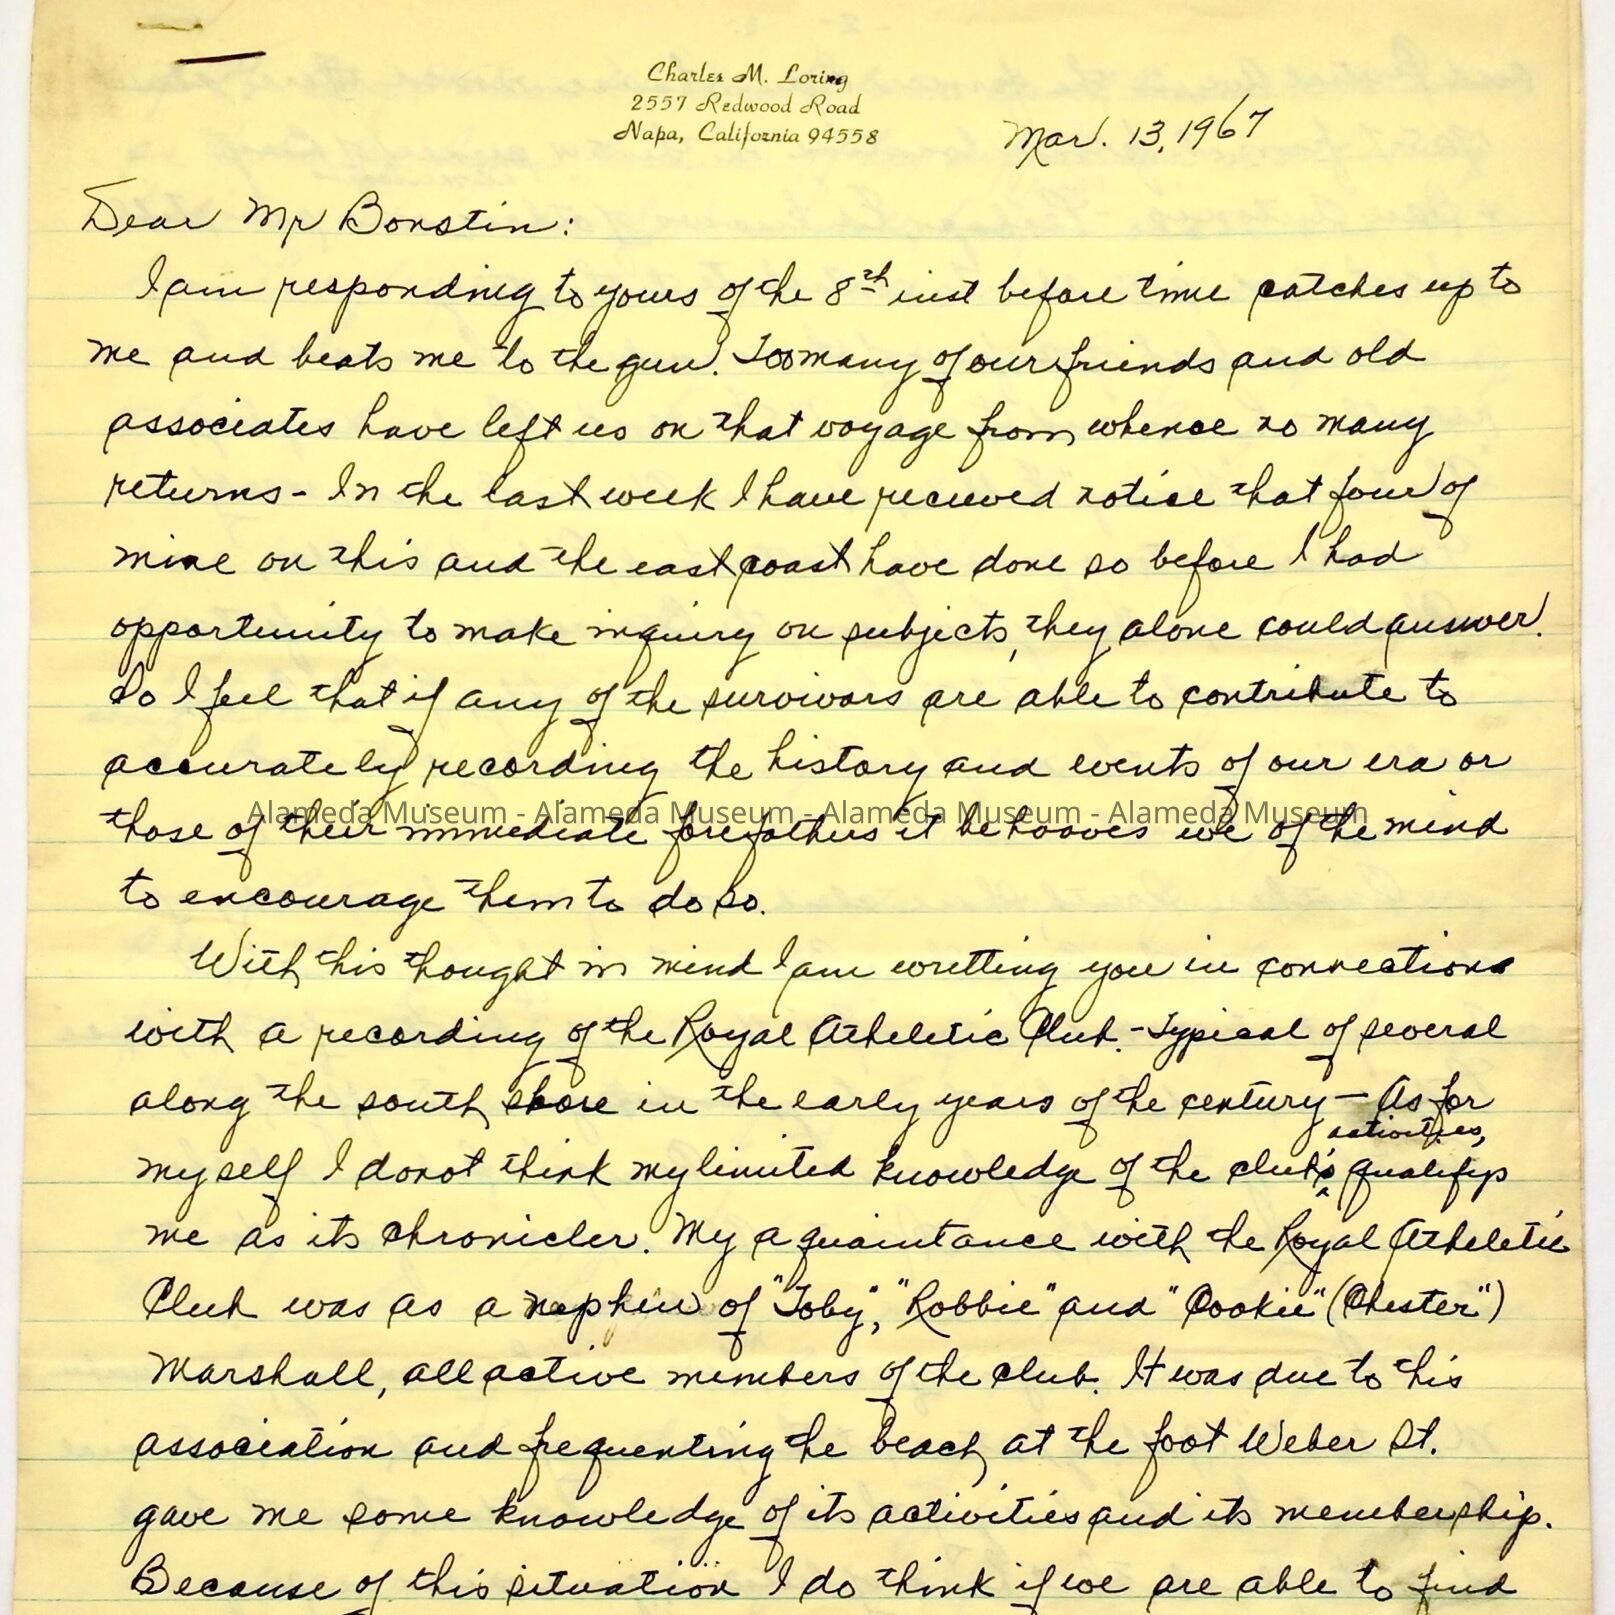 Charles M. Loring
2557 Redwood Road
Napa, California 94558
Mar. 13, 1967
Dear Mr Bonstin:
I am responding to yours of the 8th inst before time catches up to
me and beats me to the gun. Too many of our friends and old
associates have left us on that voyage from whence no many
returns - In the last week I have recieved notice that four of
mine on this and the east coast have done so before I had
opportunity to make inquiry on subjects, they alone could answer.
So I feel that if any of the survivors are able to contribute to
accurately recording the history and events of our era or
Alameda Museum - Alameda Museum - Alameda Museum - Alameda Museum
those of their immediate forefathers it behooves we of the mind
to encourage them to do so.
With this thought in mind I am writting you in connections
with a recording of the Royal Atheletic Club. - Typical of several
along the south shore in the early years of the century - As for
activities,
myself I do not think my limited knowledge of the club's qualifys
me as its chronicler. My aquaintance with the Royal Atheletic
Club was as a nephew of "Toby", "Robbie" and "Cookie" (Chester")
Marshall, all active members of the club. It was due to this
association and frequenting the beach at the foot Weber St.
gave me some knowledge of its activities and its membership.
Because of this situation I do think if we are able to find